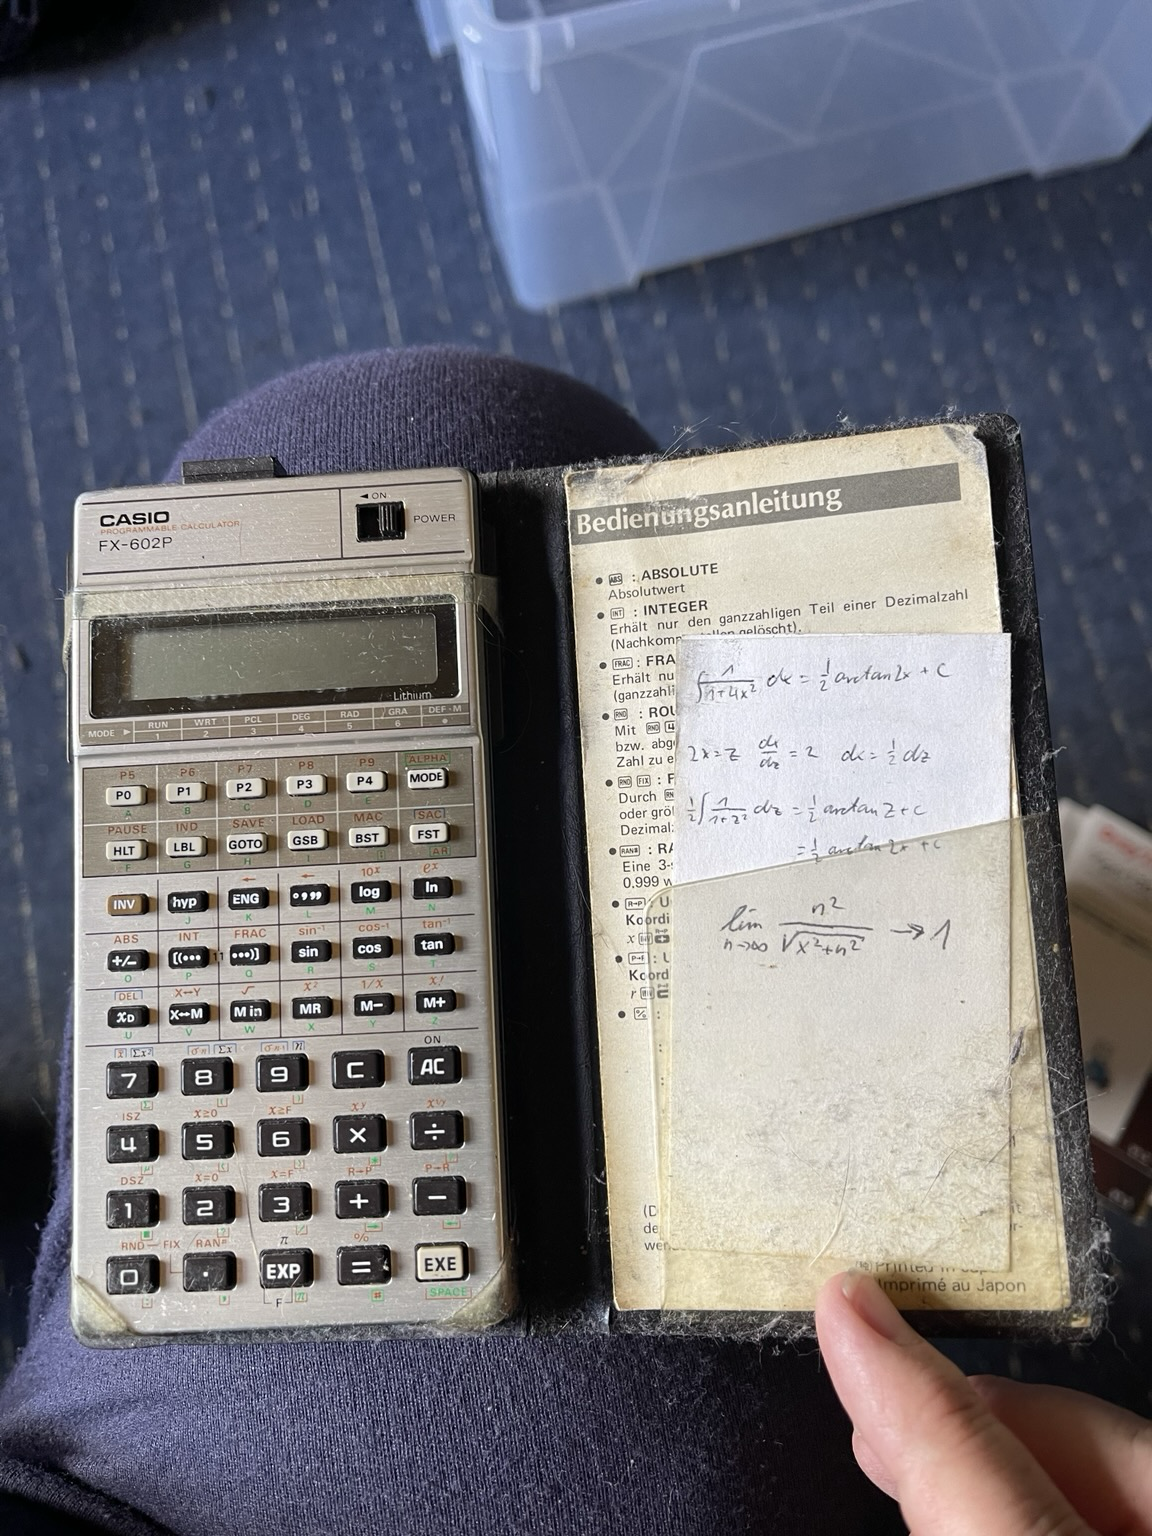 ◄ ON
CASIO
PROGRAMMABLE CALCULATOR
FX-602P
POWER
Lithium
MODE ► RUN 1 WRT 2 PCL 3 DEG 4 RAD 5 GRA 6 DEF·M •
P5 P6 P7 P8 P9 ALPHA
P0 P1 P2 P3 P4 MODE
A B C D E
PAUSE IND SAVE LOAD MAC SAC
HLT LBL GOTO GSB BST FST
F G H I AR
← ← 10ˣ eˣ
INV hyp ENG °’’’ log ln
J K L M N
ABS INT FRAC sin⁻¹ cos⁻¹ tan⁻¹
+/− [(••• 11 •••)] sin cos tan
O P Q R S T
DEL X↔Y √ x² 1/X x!
XD X↔M Min MR M− M+
U V W X Y Z
ON
7 8 9 C AC
ISZ x≥0 x≥F xʸ x¹/ʸ
4 5 6 × ÷
DSZ x=0 x=F R→P P→R
1 2 3 + −
RND — FIX RAN# π %
0 . EXP = EXE
F π # SPACE
Bedienungsanleitung
• ABS : ABSOLUTE
Absolutwert
• INT : INTEGER
Erhält nur den ganzzahligen Teil einer Dezimalzahl
(Nachkom gelöscht).
• FRAC : FRA
Erhält nu
(ganzzahli
• RND : ROU
Mit RND
bzw. abg
Zahl zu e
• RND FIX : F
Durch
oder gröl
Dezimal
• RAN# : RA
Eine 3-
0.999 w
• R→P : U
Koordi
x
• P→R : U
Koord
r
• % :
:
:
(D
de
wen
∫ 1/(1+4x²) dx = ½ arctan 2x + C
2x = z dx/dz = 2 dx = ½ dz
½ ∫ 1/(1+z²) dz = ½ arctan z + C
= ½ arctan 2x + C
lim n→∞ n²/√(x²+n²) → 1
Printed in
Imprimé au Japon